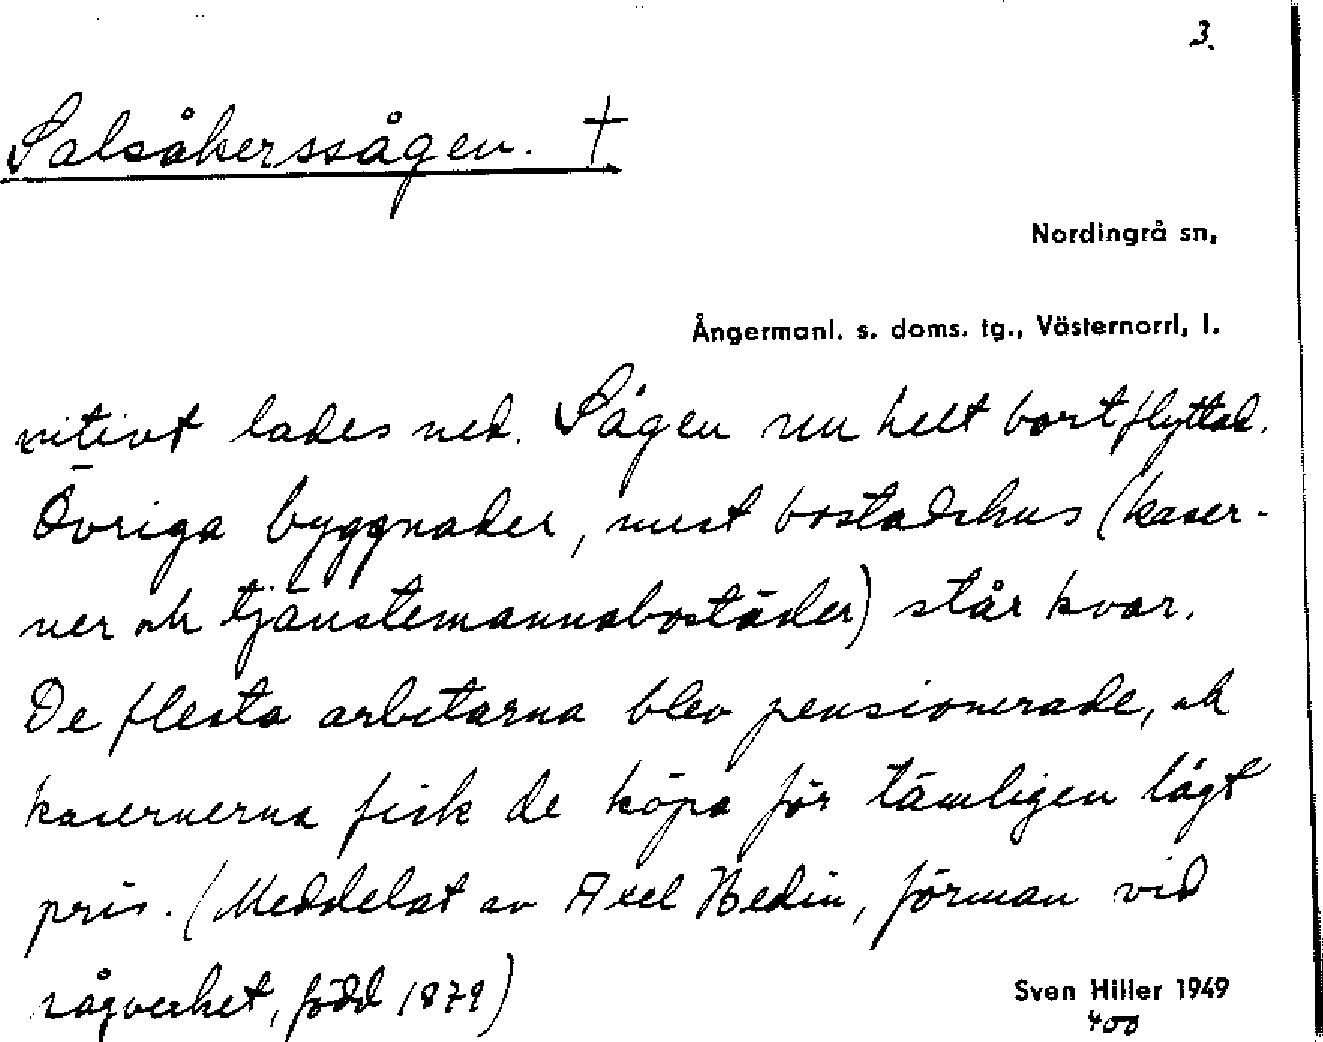 3.
Salsåkerssågen. †
Nordingrå sn,
Ångermanl. s. doms. tg., Västernorrl, l.
nitivt lades ned. Sågen nu helt bortflyttad.
Övriga byggnader, mest bostadshus (kaser-
ner och tjänstemannabostäder) står kvar.
De flesta arbetarna blev pensionerade, och
kasernerna fick de köpa för tämligen lågt
pris. (Meddelat av Axel Hedin, förman vid
sågverket, född 1879)
Sven Hiller 1949
400